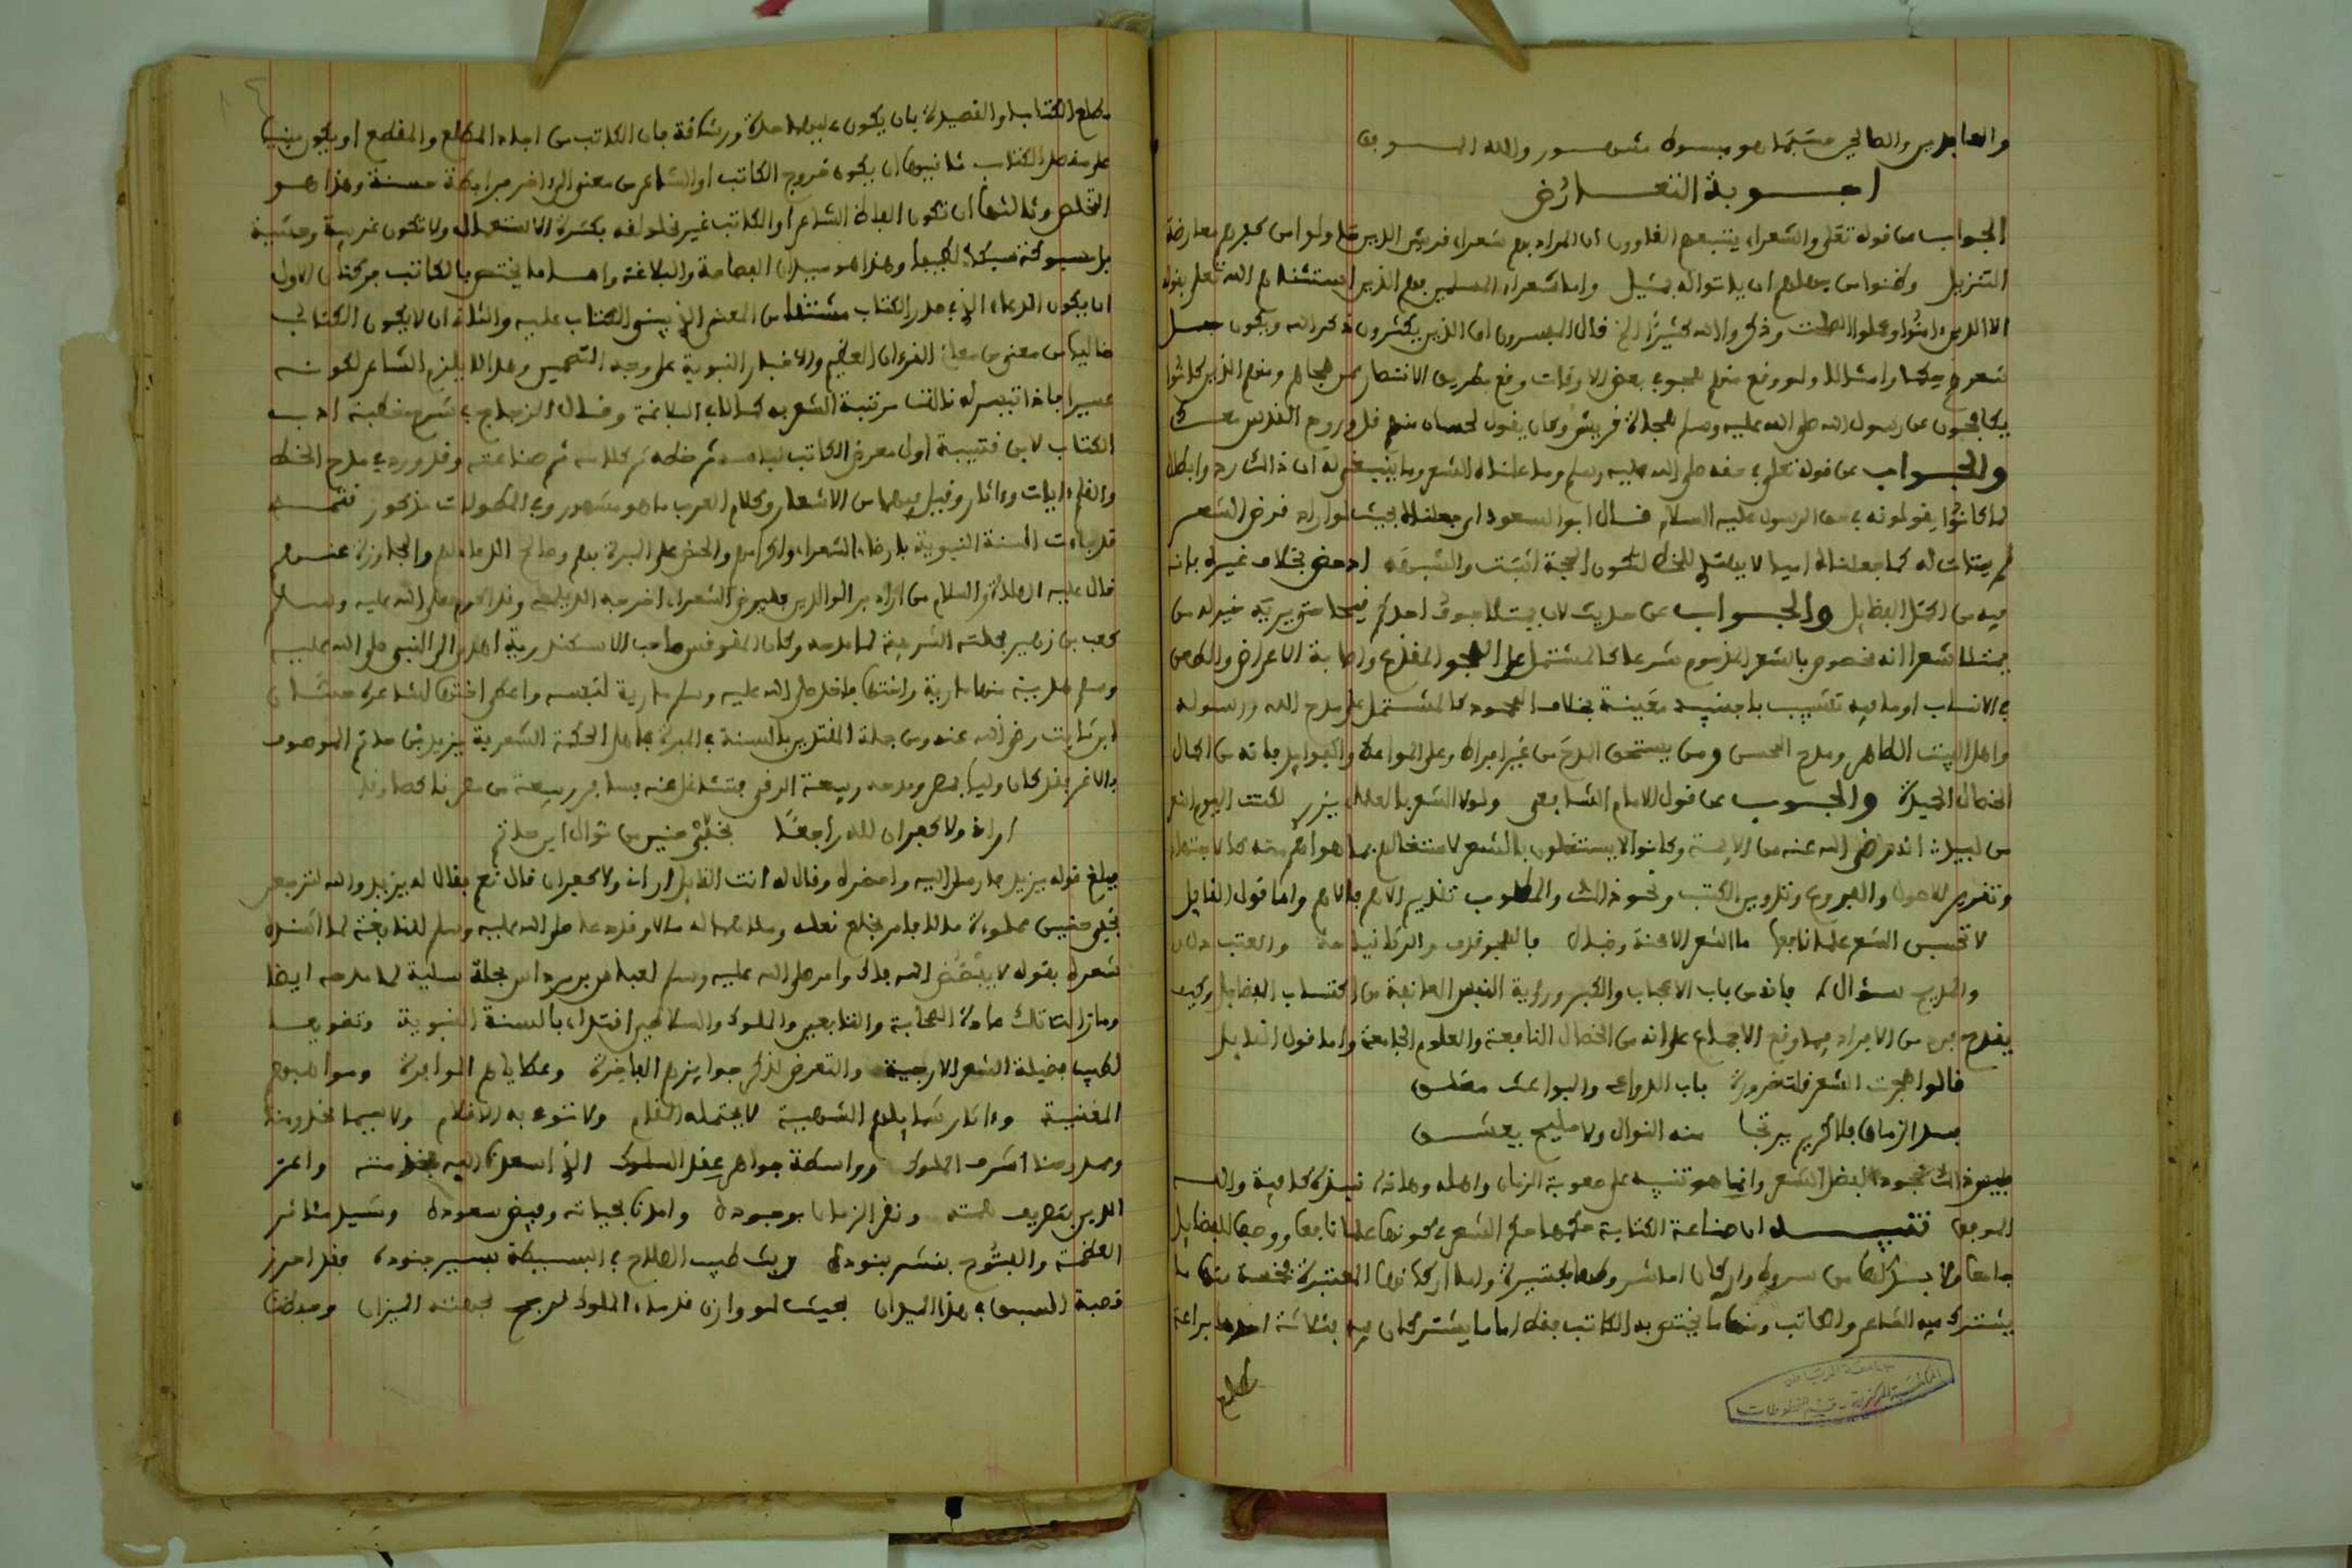 والعابدين والصالحين حسبما هو مبسوط مشهور والله الموفق
اجوبة التعارض
الجواب عن قوله تعلى والشعراء يتبعهم الغاوون ان المراد بهم شعراء قريش الذين معارضة
التنزيل وظنوا من جهلهم ان ياتوا له بمثيل واما شعراء المسلمين فهم الذين استثناهم الله تعلى بقوله
الا الذين ءامنوا وعملوا الصلحت وذكروا الله كثيرا الخ قال المفسرون اي الذين يكثرون ذكر الله ويكون جل
شعرهم حكما وامثالا ولو وقع منهم هجو في بعض الاوقات وقع بطريق الانتصار ممن هجاهم ومنهم الذين كانوا
يكافحون عن رسول الله صلى الله عليه وسلم هجاة قريش وكان يقول لحسان منهم قل وروح القدس معك
والجواب عن قوله تعلى في حقه صلى الله عليه وسلم وما علمناه الشعر وما ينبغي له ان ذالك رد وابطال
لما كانوا يقولونه في حق الرسول عليه السلام قال ابو السعود اي جعلناه بحيث لو اراد قرض الشعر
لم يتات له كما جعلناه اميا لا يهتدي للخط لتكون الحجة اثبت والشبهة ادحض بخلاف غيره فانه
فيه من اكمل الفضايل والجواب عن حديث لان يمتلئ جوف احدكم قيحا حتى يريه خير له من
يمتلئ شعرا انه مخصوص بالشعر المذموم شرعا كالمشتمل على الهجو المقذع واصابة الاعراض والطعن
في الانساب او ما فيه تشبيب باجنبية معينة بخلاف المحمود كالمشتمل على مدح الله ورسوله
واهل البيت الطاهر ومدح المحسن ومن يستحق المدح من غير افراط وعلى المواعظ والفوايد فانه من الكمال
الخصال الحميدة والجواب عن قول الامام الشافعي ولولا الشعر بالعلماء يزري لكنت اليوم اشعر
من لبيد انه رضي الله عنه من الايمة وكانوا لا يستغلون بالشعر لاشتغالهم بما هو اهم منه كالاجتهاد
وتقرير الاصول والفروع وتدوين الكتب ونحو ذالك والمطلوب تقديم الاهم فالاهم واما قول القايل
لا تحسبن الشعر علما نافعا ما الشعر الا محنة وخبال فالهجو قذف والرثا نياحة والعتب
والمديح سؤال فانه من باب الاعجاب والكبر ورؤية النفس المانعة من اكتساب الفضايل وكيف
يقدح فرد من الافراد فيما وقع الاجماع على انه من الخصال النافعة والعلوم الجامعة واما قول القايل
قالوا هجرت الشعر قلت ضرورة باب الدواعي والبواعث مغلق
فسد الزمان فلا كريم يرتجا منه النوال ولا مليح يعشق
فليس ذالك نقص الشعر وانما هو تنبيه على صعوبة الزمان واهله وهاذه نبذة كافية والله
الموفق تنبيه اما صناعة الكتابة حكمها حكم الشعر في كونها علما نافعا ووصفا للفضايل
جامعا ولا بد لها من شروط واركان اما شروطها فكثيرة واما اركانها المعتبرة فخمسة منها ما
يشترك فيه الشاعر والكاتب ومنها ما يختص به الكاتب فقط اما ما يشتركان فيه فثلاثة احدها براعة
مطلع
جامعة الرياض
المكتبة المركزية - قسم المخطوطات
مطلع الكتاب او القصيدة بان يكون عليها جدة ورشاقة فان الكاتب من اجاد المطلع والمقطع او يكون مبنيا
على مقصد الكتاب ثانيها ان يكون خروج الكاتب او الشاعر من معنى الى ءاخر برابطة حسنة وهذا هو
التخلص وثالثها ان تكون الفاظ الشاعر او الكاتب غير مخلولقة بكثرة الاستعمال ولا تكون غريبة وحشية
بل مسبوكة سبكا لطيفا وهذا هو ميدان الفصاحة والبلاغة واما ما يختص بالكاتب فركنان الاول
ان يكون الدعاء الذي في صدر الكتاب مشتقا من المعنى الذي بني الكتاب عليه والثاني ان لا يكون الكتاب
خاليا من معنى من معاني القرءان العظيم والاخبار النبوية على وجه التضمين وهذا لا يلزم الشاعر لكونه
عسيرا فاذا تيسر له نالت مرتبة الشعر به كمالا في البلاغة وقال الزجاج في شرح خطبة ادب
الكتاب لابن قتيبة اول معرض الكاتب لباسه ثم خطه ثم كلامه ثم صناعته وقد ورد في مدح الخط
والقلم ءايات وءاثار وقيل فيهما من الاشعار وكلام العرب ما هو مشهور وفي المطولات مذكور تتمة
قد جاءت السنة النبوية بارضاء الشعراء واكرامهم والحض على المبرة بهم وصالح الدعاء لهم والمجاوزة عنهم
قال عليه الصلاة والسلام من اراد بر الوالدين فليرض الشعراء اخرجه الديلمي وقد اكرم صلى الله عليه وسلم
كعب بن زهير بحلته الشريفة لما مدحه وكان المقوقس صاحب الاسكندرية اهدى الى النبي صلى الله عليه
وسلم هدية منها مارية واختها فاخذ صلى الله عليه وسلم مارية لنفسه واعطى اختها لشاعره حسان
ابن ثابت رضي الله عنه ومن جملة المقتدين بالسنة في المبرة باهل الحكمة الشعرية يزيد بن حاتم الموصوف
بالاغر فقد كان واليا بمصر ومدحه ربيعة الرقي فتشاغل عنه فسافر ربيعة من مصر
اراني ولا كفران لله راجعا بخفي حنين من نوال ابن حاتم
فبلغ قوله يزيد فارسل اليه واحضره وقال له انت القايل اراني ولا كفران قال نعم فقال له يزيد والله لترجعن
بخفي حنين مملوءة مالا فامر بخلع نعله وملاها له مالا وقد دعا صلى الله عليه وسلم للنابغة لما انشده
شعره بقوله لا يفضض الله فاك وامر صلى الله عليه وسلم لعباس بن مرداس بحلة سنية لما مدحه ايضا
وما زالت تلك عادة الصحابة والتابعين والملوك والسلاطين اقتداء بالسنة النبوية وتعويضا
لطيب فضيلة الشعر الارجية والتعرض لذكر جوايزهم الفاخرة وعطاياهم الوافرة ومواهبهم
المغنية وءاثار شمايلهم الشهية لا يحتمله المقام ولا تنوء به الاقلام ولا سيما مخدومنا
وممدوحنا اشرف الملوك وواسطة جواهر عقد السلوك الذي اسعد الله بخدمته واعز
الدين بتصريف همته وتفخر الزمان بوجوده وامدنا بحياته وفيض سعوده وتشييد مئاثر
العظمة والفتوح بنشر بنوده وبث طيب الصلاح في البسيطة بسير جنوده فقد احرز
قصبة السبق في هذا الميدان بحيث لو وازن قدماء الملوك لرجح بجهته الميزان